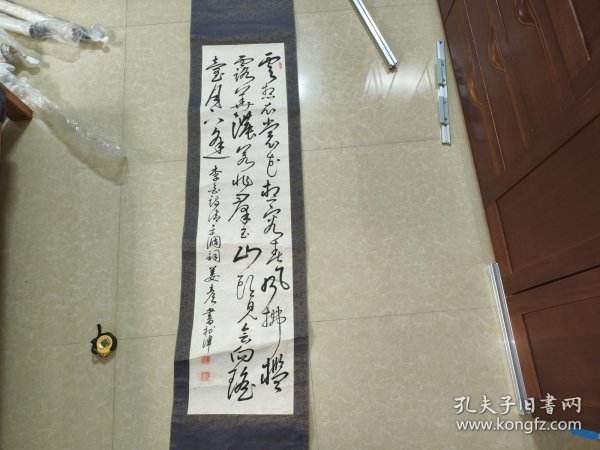 雲想衣裳花想容春風拂檻
露華濃若非群玉山頭見會向瑤
臺月下逢 李白詩清平調詞 姜彦書於津
孔夫子旧書网
www.kongfz.com